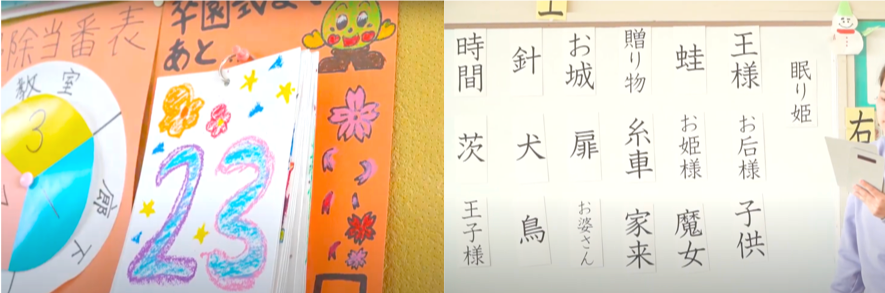 除当番表
教室
廊下
3
1
卒園式まで
あと
23
眠り姫
王様
お后様
子供
蛙
お姫様
魔女
贈り物
糸車
家来
お城
扉
お婆さん
針
犬
鳥
時間
茨
王子様
右